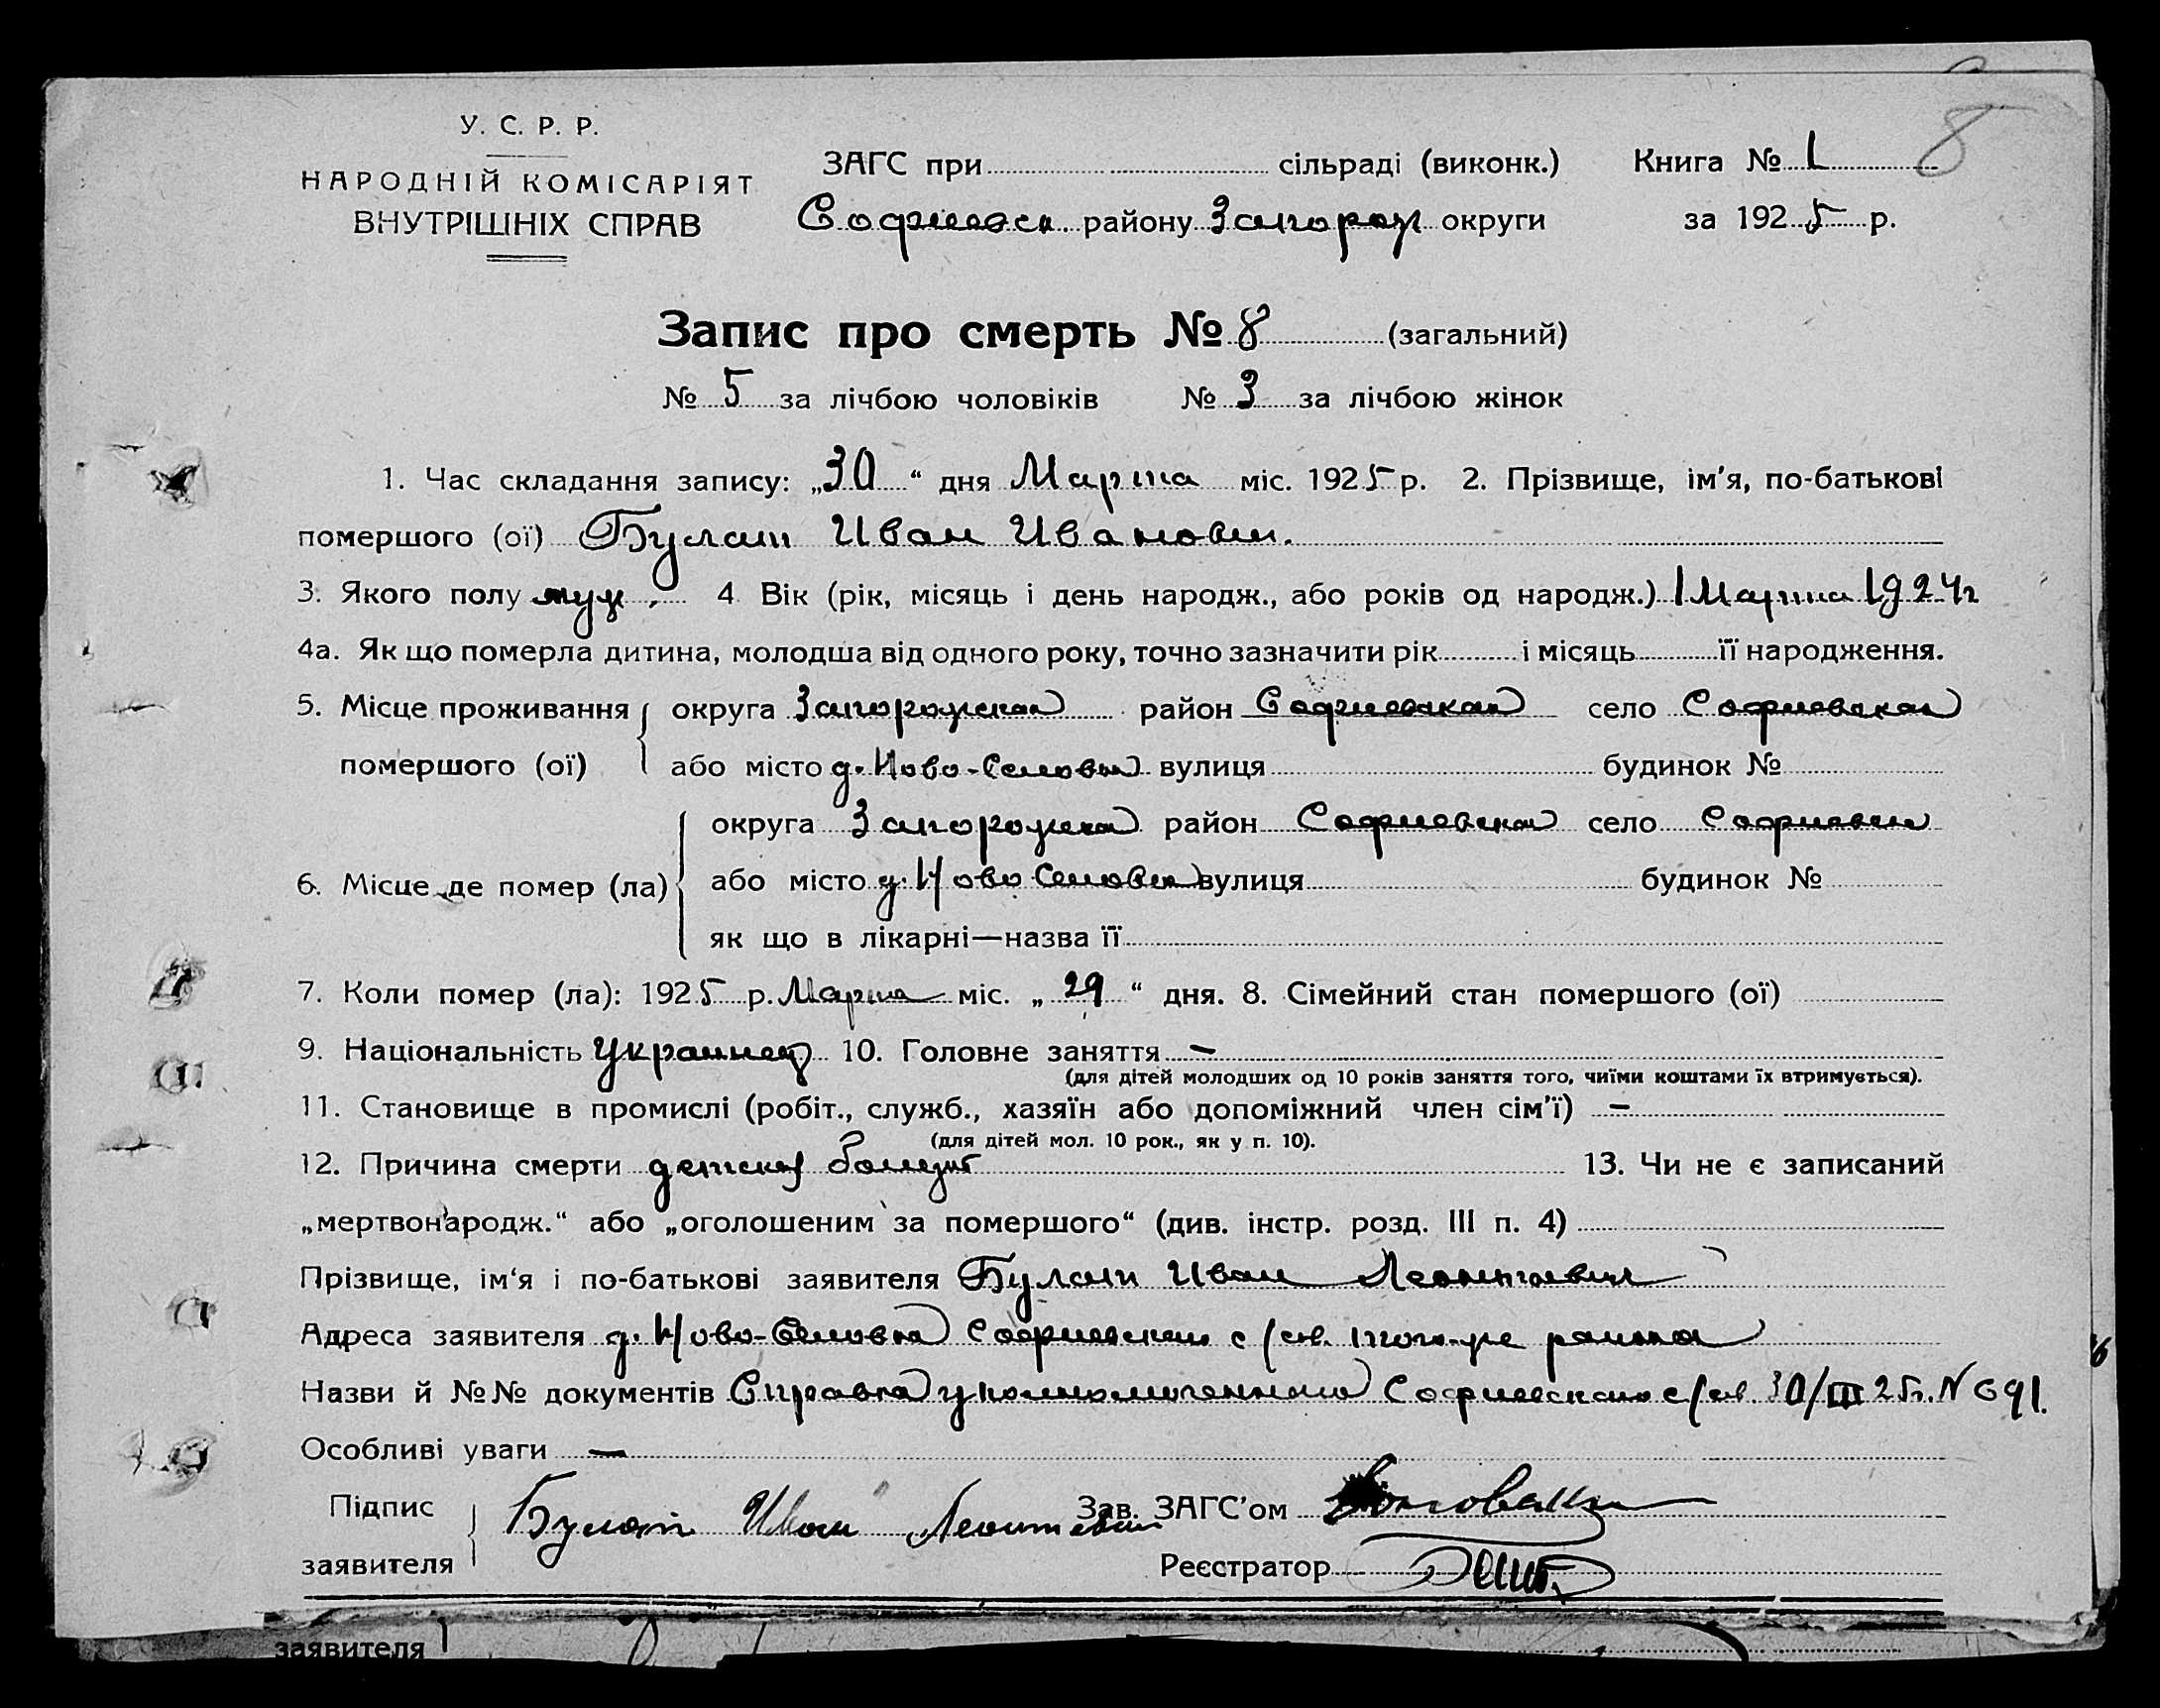 8
У. С. Р. Р.
НАРОДНІЙ КОМІСАРІЯТ
ВНУТРІШНІХ СПРАВ
ЗАГС при сільраді (виконк.) Книга № 1
Софиевск району Запорож округи за 1925 р.
Запис про смерть № 8 (загальний)
№ 5 за лічбою чоловіків № 3 за лічбою жінок
1. Час складання запису: „30“ дня Марта міс. 1925 р. 2. Прізвище, ім'я, по-батькові
помершого (ої) Булат Иван Иванович.
3. Якого полу муж. 4 Вік (рік, місяць і день народж., або років од народж.) 1 Марта 1924 г
4а. Як що померла дитина, молодша від одного року, точно зазначити рік і місяць її народження.
5. Місце проживання округа Запорожская район Софиевская село Софиевская
помершого (ої) або місто д. Ново-Селовка вулиця будинок №
округа Запорожская район Софиевская село Софиевка
6. Місце де помер (ла) або місто д. Ново Селовка вулиця будинок №
як що в лікарні—назва її
7. Коли помер (ла): 1925 р. Марта міс. „29“ дня. 8. Сімейний стан помершого (ої)
9. Національність Украинец 10. Головне заняття —
(для дітей молодших од 10 років заняття того, чиїми коштами їх втримується).
11. Становище в промислі (робіт., служб., хазяїн або допоміжний член сім'ї) —
(для дітей мол. 10 рок., як у п. 10).
12. Причина смерти детская болезнь 13. Чи не є записаний
„мертвонародж.“ або „оголошеним за помершого“ (див. інстр. розд. III п. 4)
Прізвище, ім'я і по-батькові заявителя Булат Иван Леонтиевич
Адреса заявителя д. Ново-Селовка Софиевскаго с/сов. того-же района
Назви й №№ документів Справка уполномоченнаго Софиевскаго с/сов. 30/III 25 г. N 691.
Особливі уваги —
Підпис Булат Иван Леонтевич Зав. ЗАГС'ом
заявителя Реєстратор
заявителя